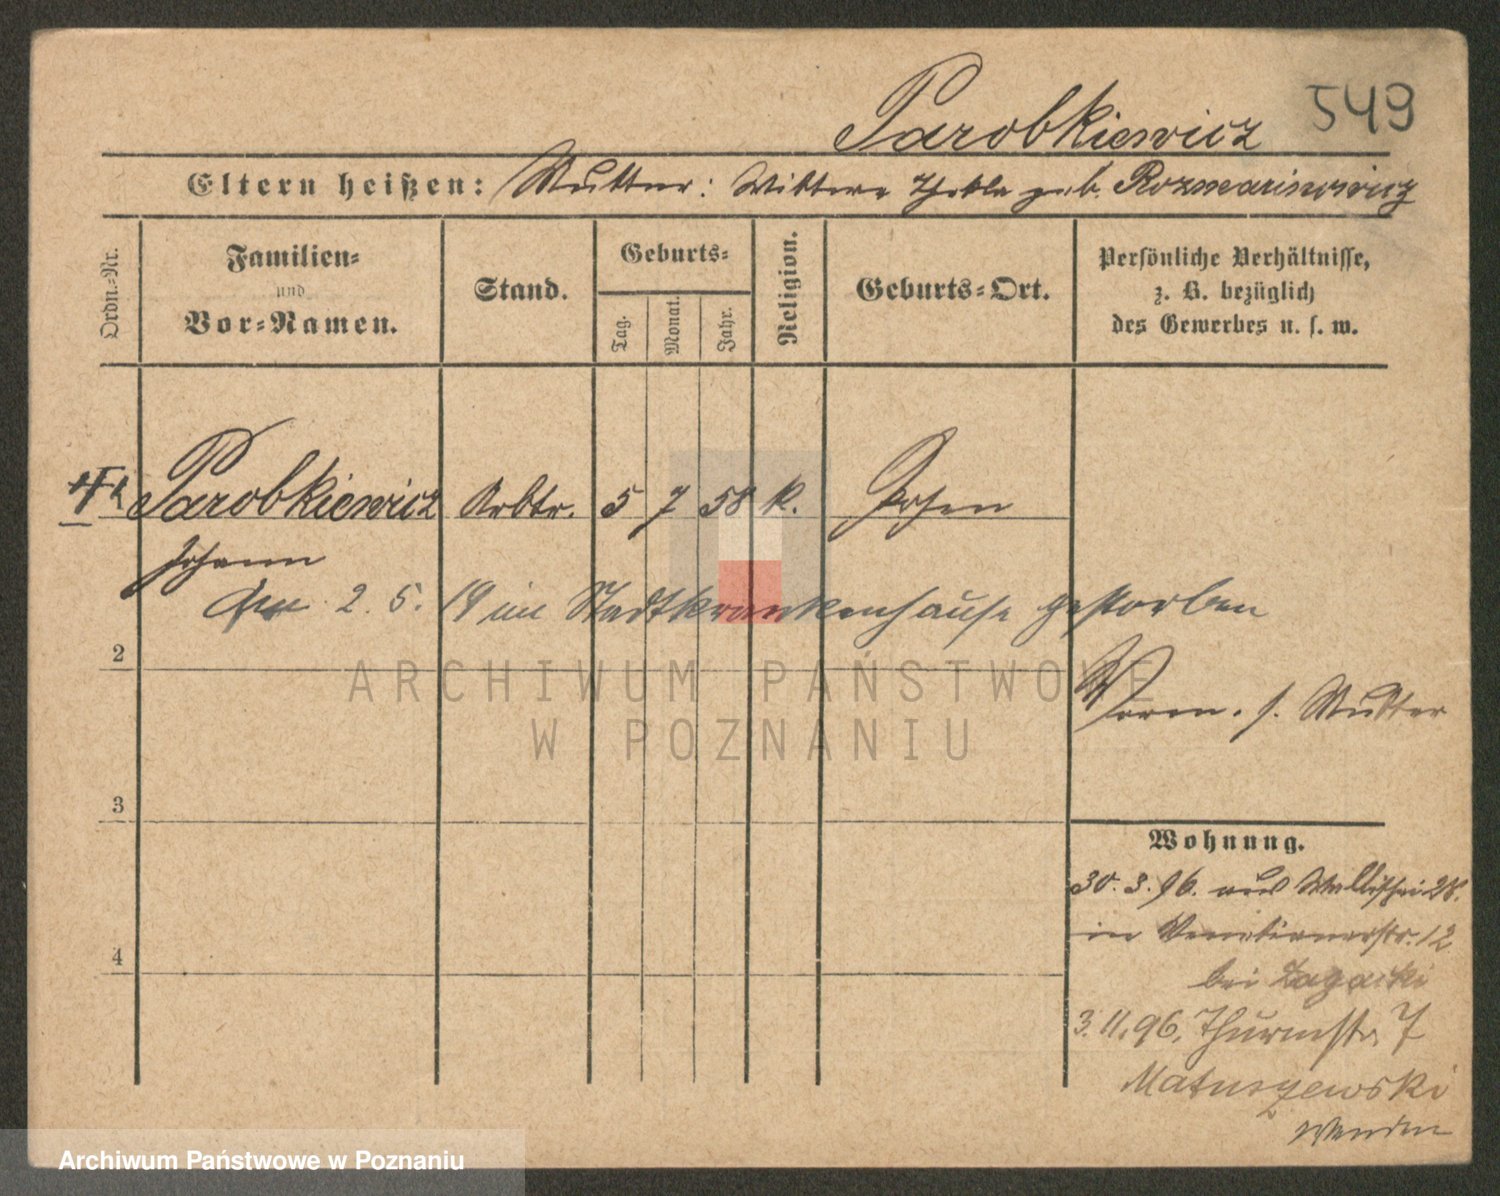 549
Parobkiewicz
Eltern heißen: Mutter: Wittwe Thekla geb. Rozmarinowicz
Ordn.-Nr.
Familien-
und
Vor-Namen.
Stand.
Geburts-
Tag.
Monat.
Jahr.
Religion.
Geburts-Ort.
Persönliche Verhältnisse,
z. B. bezüglich
des Gewerbes u. s. w.
Parobkiewicz Arbtr. 5 7 58 k. Posen
Johann
Den 2. 5. 19 im Stadtkrankenhause gestorben
2
Vorm. s. Mutter
3
Wohnung.
30. 3. 96. aus Wallischei 28.
in Venetianerstr. 12
4
bei Zagacki
3. 11. 96. Thurmstr. 7
Matuszewski
wenden
ARCHIWUM PAŃSTWOWE
W POZNANIU
Archiwum Państwowe w Poznaniu